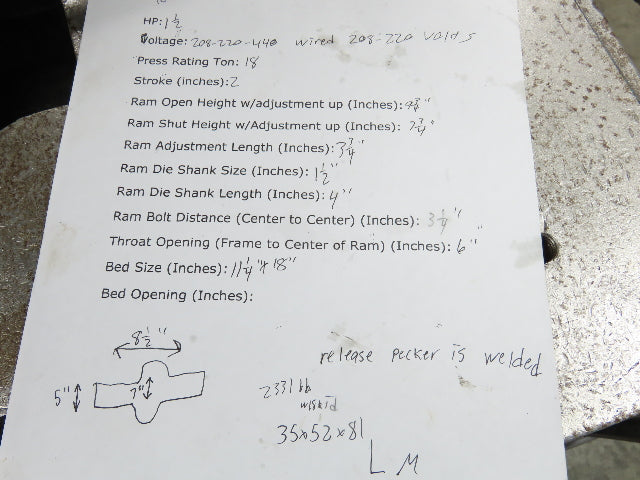 HP: 1 1/2
Voltage: 208-220-440 wired 208-220 volts
Press Rating Ton: 18
Stroke (inches): 2
Ram Open Height w/adjustment up (Inches):
Ram Shut Height w/Adjustment up (Inches): 7 3/4"
Ram Adjustment Length (Inches): 3 3/4"
Ram Die Shank Size (Inches): 1 1/2"
Ram Die Shank Length (Inches): 4"
Ram Bolt Distance (Center to Center) (Inches): 3 1/4"
Throat Opening (Frame to Center of Ram) (Inches): 6"
Bed Size (Inches): 11 1/4" x 18"
Bed Opening (Inches):
8 1/2"
5"
7"
release pecker is welded
233 lbs
w/skid
35x52x81
L M